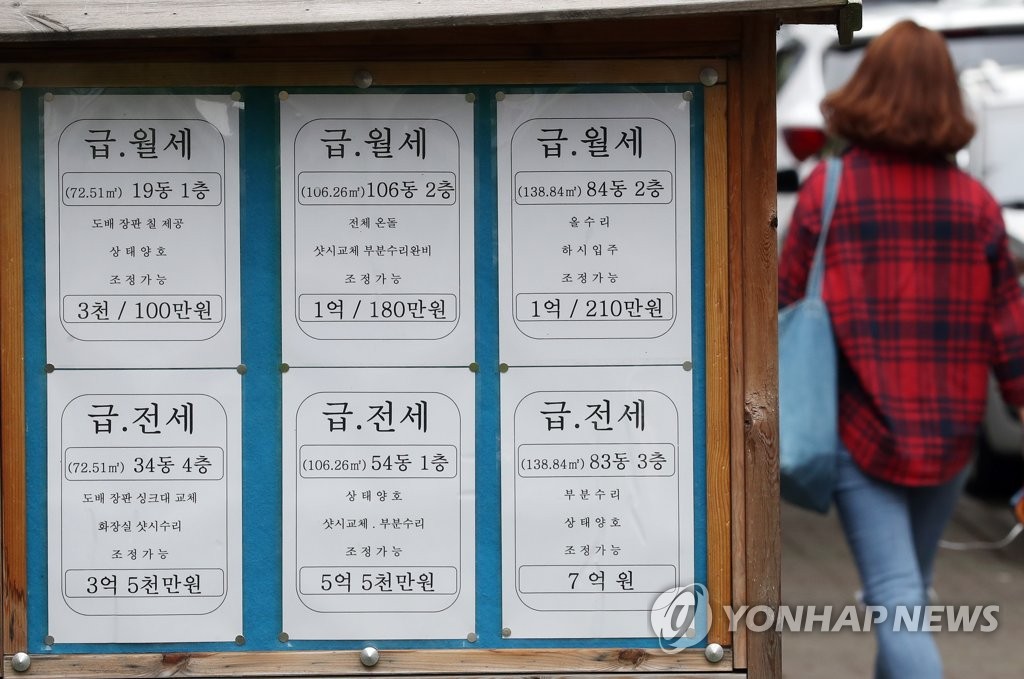 급.월세
(72.51㎡) 19동 1층
도배 장판 칠 제공
상 태 양 호
조 정 가 능
3천 / 100만원
급.월세
(106.26㎡) 106동 2층
전체 온돌
샷시교체 부분수리완비
조 정 가 능
1억 / 180만원
급.월세
(138.84㎡) 84동 2층
올 수 리
하 시 입 주
조 정 가 능
1억 / 210만원
급.전세
(72.51㎡) 34동 4층
도배 장판 싱크대 교체
화장실 샷시수리
조 정 가 능
3억 5천만원
급.전세
(106.26㎡) 54동 1층
상 태 양 호
샷시교체 . 부분수리
조 정 가 능
5억 5천만원
급.전세
(138.84㎡) 83동 3층
부 분 수 리
상 태 양 호
조 정 가 능
7 억 원
YONHAP NEWS